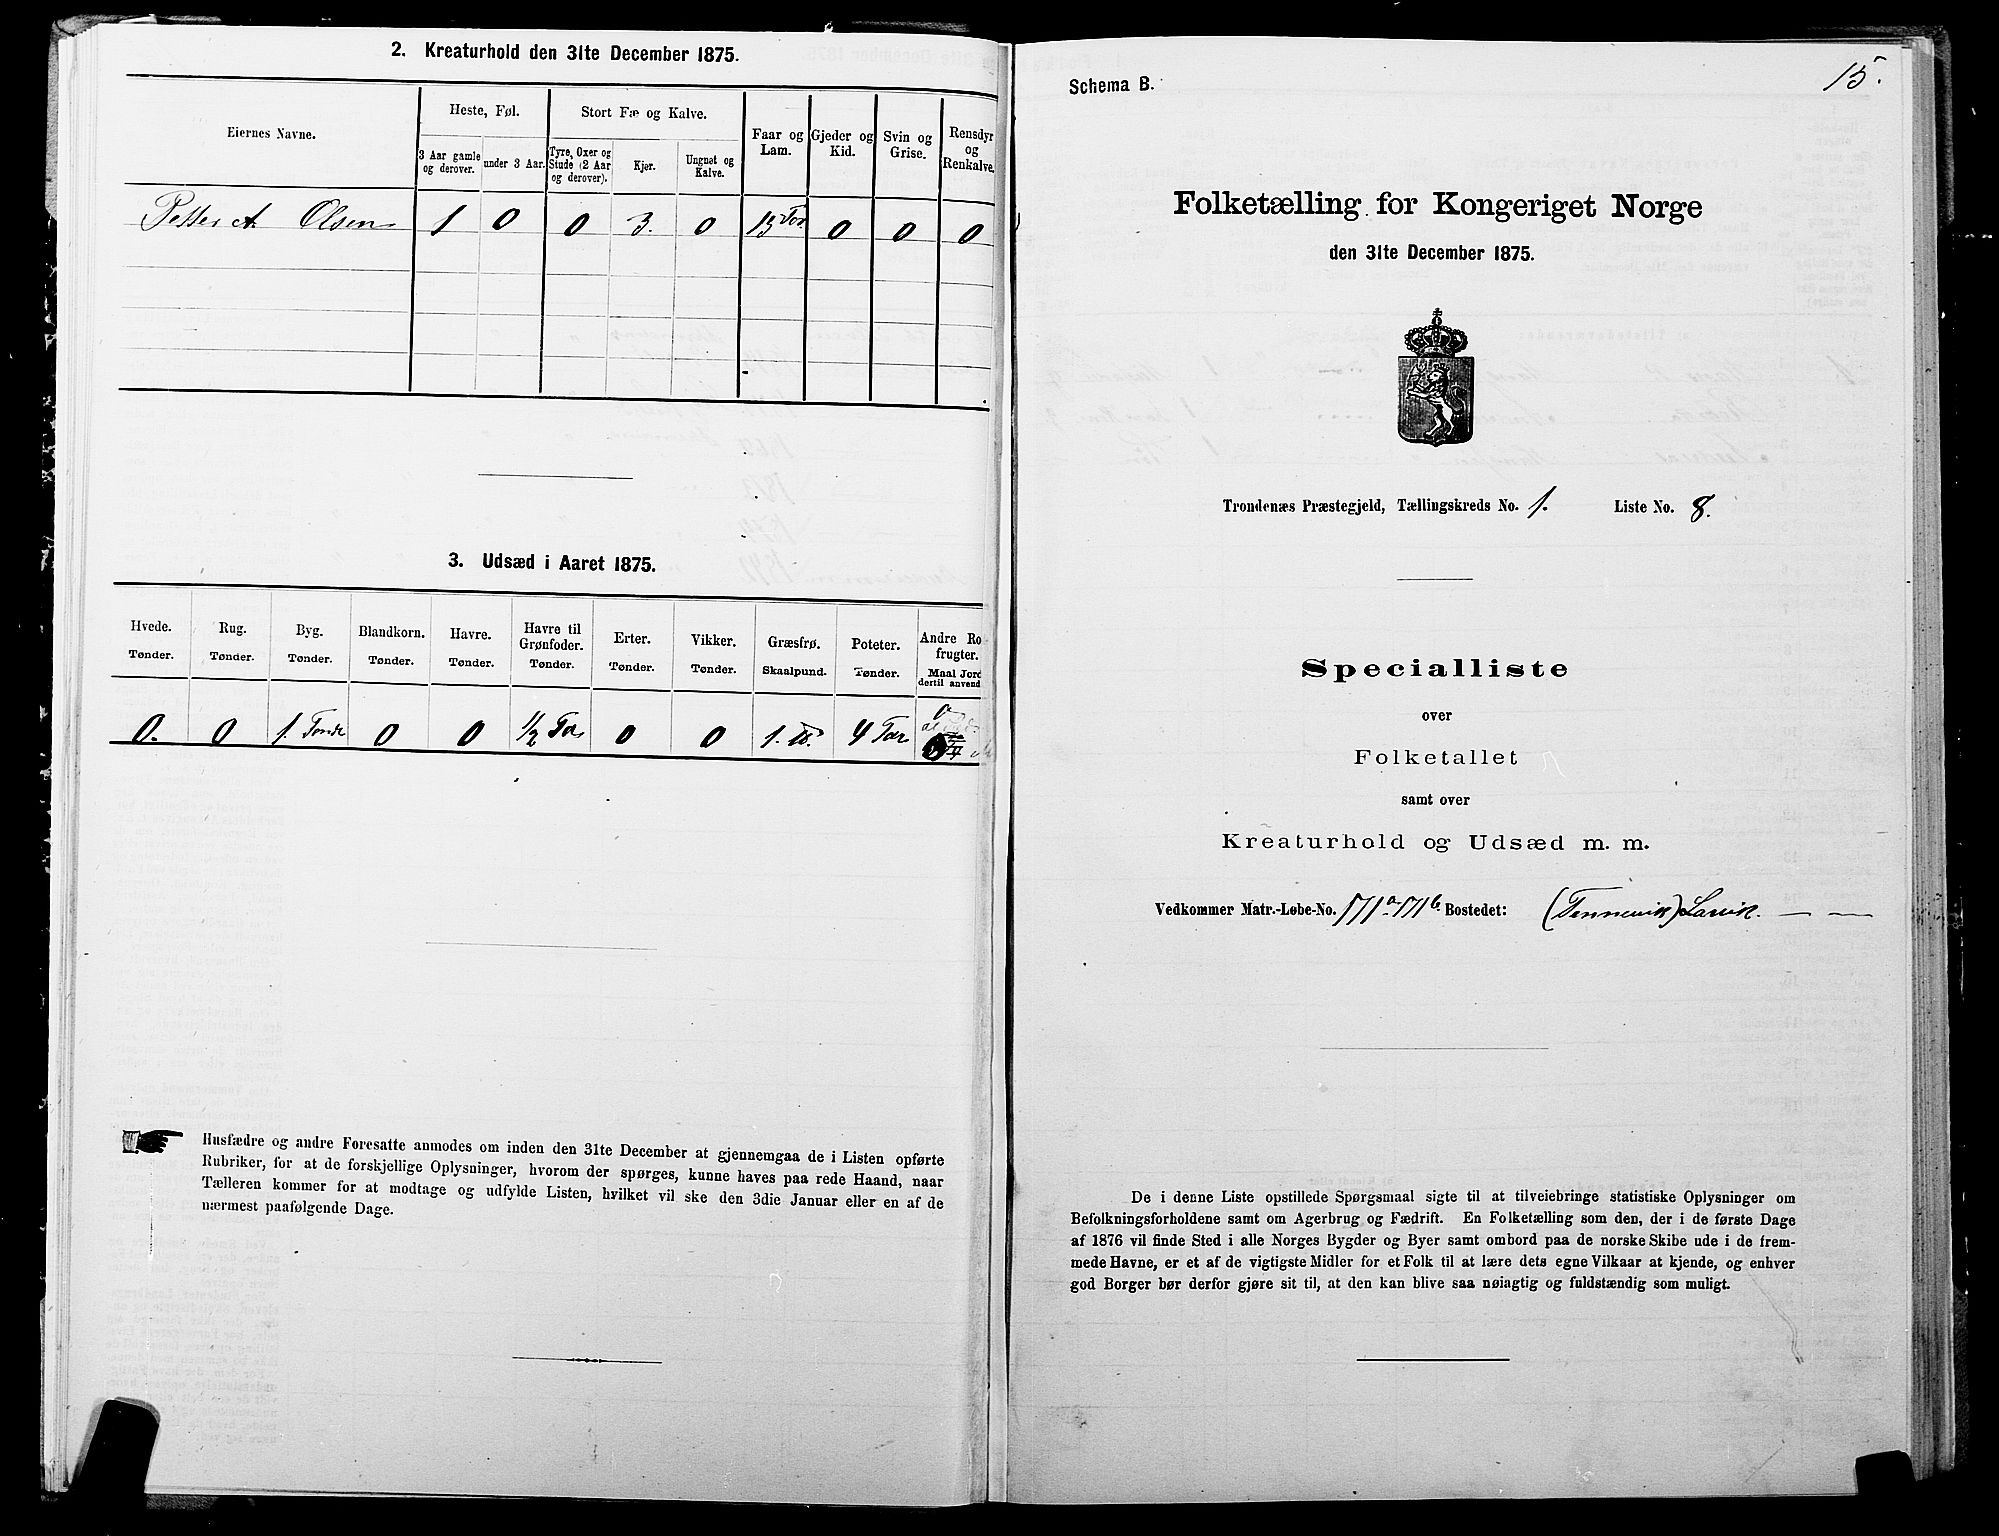 2. Kreaturhold den 31te December 1875.
Eiernes Navne.
Heste, Føl.
3 Aar gamle og derover.
under 3 Aar.
Stort Fæ og Kalve.
Tyre, Oxer og Stude (2 Aar og derover).
Kjer.
Ungnøt og Kalve.
Faar og Lam.
Gjeder og Kid.
Svin og Grise.
Rensdyr og Renkalve.
Petter A Olsen 1 0 0 3. 0 15 0 0 0
3. Udsæd i Aaret 1875.
Hvede. Tønder.
Rug. Tønder.
Byg. Tønder.
Blandkorn. Tønder.
Havre. Tønder.
Havre til Grønfoder. Tønder.
Erter. Tønder.
Vikker. Tønder.
Græsfrø. Skaalpund.
Poteter. Tønder.
Andre Ro frugter. Maal Jord dertil anvend
0. 0 1. Tonde 0 0 1/2 0 0 1. 4 0
Husfædre og andre Foresatte anmodes om inden den 31te December at gjennemgaa de i Listen opførte
Rubriker, for at de forskjellige Oplysninger, hvorom der spørges, kunne haves paa rede Haand, naar
Tælleren kommer for at modtage og udfylde Listen, hvilket vil ske den 3die Januar eller en af de
nærmest paafølgende Dage.
15.
Schema B.
Folketælling for Kongeriget Norge
den 31te December 1875.
Trondenæs Præstegjeld, Tællingskreds No. 1. Liste No. 8.
Specialliste
over
Folketallet
samt over
Kreaturhold og Udsæd m. m.
Vedkommer Matr.-Løbe-No. 171a 171b Bostedet: (Tennevik) Larvik.
De i denne Liste opstillede Spørgsmaal sigte til at tilveiebringe statistiske Oplysninger om
Befolkningsforholdene samt om Agerbrug og Fædrift. En Folketælling som den, der i de første Dage
af 1876 vil finde Sted i alle Norges Bygder og Byer samt ombord paa de norske Skibe ude i de frem-
mede Havne, er et af de vigtigste Midler for et Folk til at lære dets egne Vilkaar at kjende, og enhver
god Borger bør derfor gjøre sit til, at den kan blive saa nøiagtig og fuldstændig som muligt.